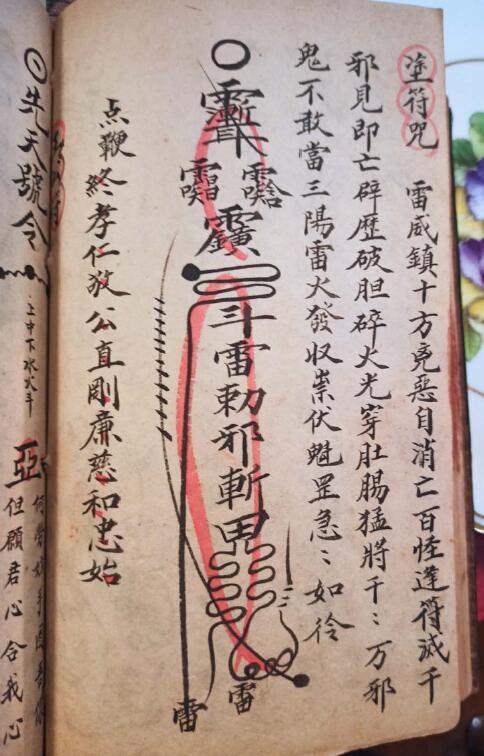 塗符咒 雷威鎮十方兇惡自消亡百怪逢符滅千
邪見即亡霹歷破胆碎火光穿肚腸猛將千〻万邪
鬼不敢當三陽雷火發収祟伏魁罡急〻如彾
斗雷勅邪斬鬼
雷
雷
点鞭終孝仁敬公直剛廉慈和忠始
先天號令
上中下水火斗
亞
但願君心合我心